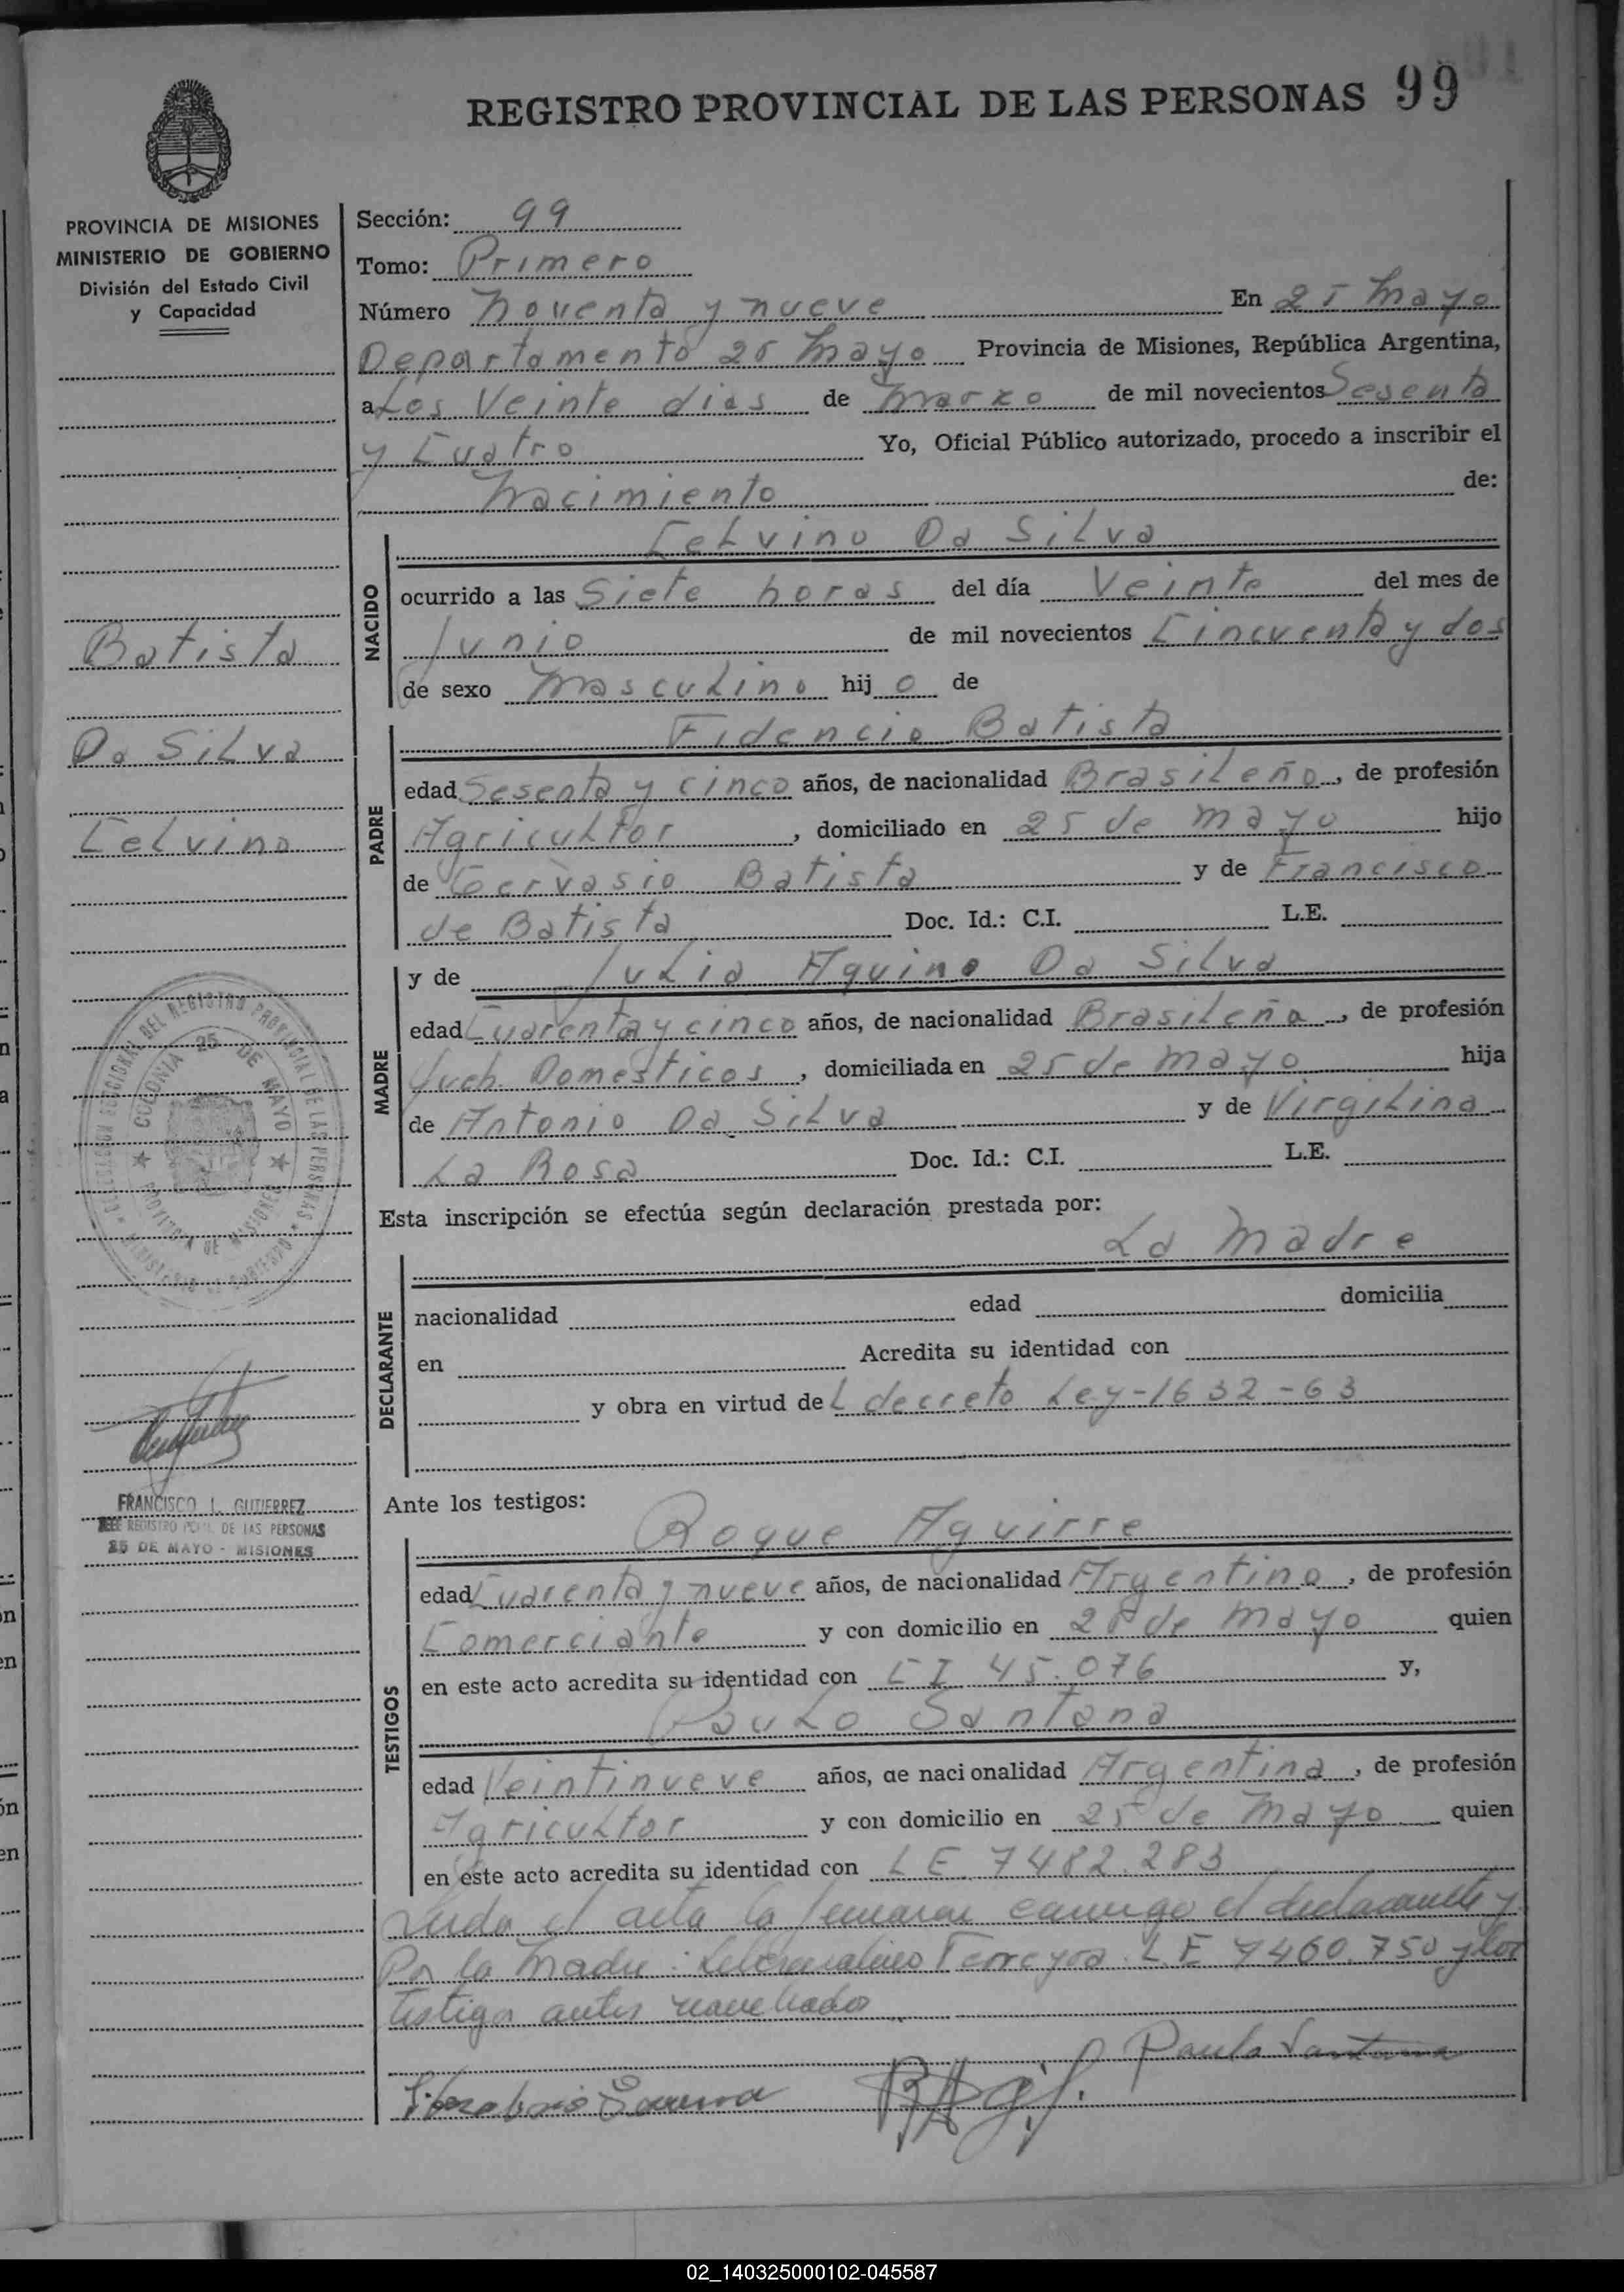 REGISTRO PROVINCIAL DE LAS PERSONAS 99
PROVINCIA DE MISIONES
MINISTERIO DE GOBIERNO
División del Estado Civil
y Capacidad
Sección: 99
Tomo: Primero
Número Noventa y nueve En 25 Mayo
Departamento 25 Mayo Provincia de Misiones, República Argentina,
a Los Veinte dias de Marzo de mil novecientos Sesenta
y Cuatro Yo, Oficial Público autorizado, procedo a inscribir el
Nacimiento de:
NACIDO
Celvino Da Silva
ocurrido a las Siete horas del día Veinte del mes de
Junio de mil novecientos Cincuenta y dos
de sexo Masculino hijo de
Batista
Da Silva
Celvino
PADRE
Fidencio Batista
edad Sesenta y cinco años, de nacionalidad Brasileño, de profesión
Agricultor, domiciliado en 25 de Mayo hijo
de Gervasio Batista y de Francisco
de Batista Doc. Id.: C.I. L.E.
MADRE
y de Julia Aquino Da Silva
edad Cuarenta y cinco años, de nacionalidad Brasileña, de profesión
Queh. Domesticos, domiciliada en 25 de Mayo hija
de Antonio Da Silva y de Virgilina
La Rosa Doc. Id.: C.I. L.E.
DELEGACION SECCIONAL DEL REGISTRO PROVINCIAL DE LAS PERSONAS
COLONIA 25 DE MAYO
PROVINCIA DE MISIONES
MINISTERIO DE GOBIERNO
Esta inscripción se efectúa según declaración prestada por:
La Madre
DECLARANTE
nacionalidad edad domicilia
en Acredita su identidad con
y obra en virtud del decreto Ley-1632-63
FRANCISCO L. GUTIERREZ
JEFE REGISTRO PCIAL. DE LAS PERSONAS
25 DE MAYO - MISIONES
Ante los testigos:
TESTIGOS
Roque Aguirre
edad Cuarenta y nueve años, de nacionalidad Argentino, de profesión
Comerciante y con domicilio en 25 de Mayo quien
en este acto acredita su identidad con CI 45.076 y,
Paulo Santana
edad Veintinueve años, de nacionalidad Argentina, de profesión
Agricultor y con domicilio en 25 de Mayo quien
en este acto acredita su identidad con LE 7482.283
Leida el acta la firmaron conmigo el declarante y
Por la Madre: Ferreyra L.E 7460.750 y los
testigos antes
Paulo Santana
02_140325000102-045587